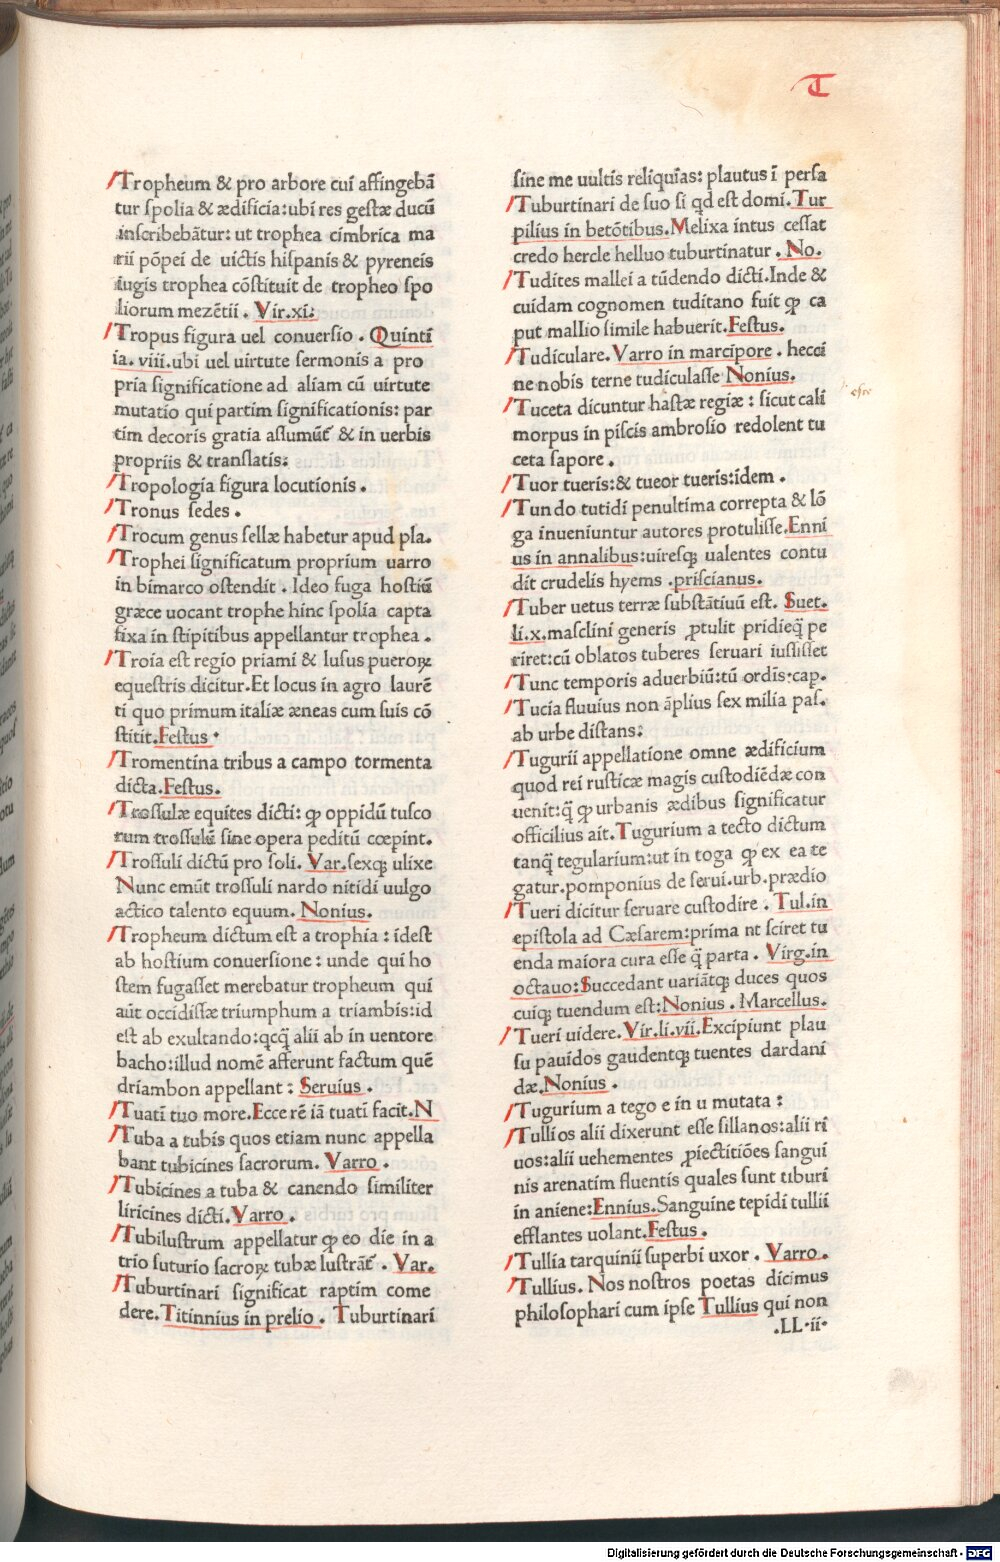 T
Tropheum & pro arbore cui affingebā
tur spolia & ædificia: ubi res gestæ ducū
inscribebātur: ut trophea cimbrica ma
rii pōpei de uictis hispanis & pyreneis
iugis trophea cōstituit de tropheo spo
liorum mezētii . Vir.xi:
Tropus figura uel conuersio . Quinti
ia. viii.ubi uel uirtute sermonis a pro
pria significatione ad aliam cū uirtute
mutatio qui partim significationis: par
tim decoris gratia assumūt̄ & in uerbis
propriis & translatis:
Tropologia figura locutionis .
Tronus sedes .
Trocum genus sellæ habetur apud pla.
Trophei significatum proprium uarro
in bimarco ostendit . Ideo fuga hostiū
græce uocant trophe hinc spolia capta
fixa in stipitibus appellantur trophea .
Troia est regio priami & lusus pueroꝝ
equestris dicitur.Et locus in agro laurē
ti quo primum italiæ æneas cum suis cō
stitit.Festus .
Tromentina tribus a campo tormenta
dicta.Festus.
Trossulæ equites dicti: ꝙ oppidū tusco
rum trossulū sine opera peditū cœpint.
Trossuli dictū pro soli. Var.sexqꝫ ulixe
Nunc emūt trossuli nardo nitidi uulgo
actico talento equum. Nonius.
Tropheum dictum est a trophia : idest
ab hostium conuersione : unde qui ho
stem fugasset merebatur tropheum qui
aūt occidissæ triumphum a triambis:id
est ab exultando:qcq̄ alii ab in uentore
bacho:illud nomē afferunt factum quē
driambon appellant : Seruius .
Tuati tuo more.Ecce rē iā tuati facit.N
Tuba a tubis quos etiam nunc appella
bant tubicines sacrorum. Varro .
Tubicines a tuba & canendo similiter
liricines dicti.Varro .
Tubilustrum appellatur ꝙ eo die in a
trio suturio sacroꝝ tubæ lustrāt̄ . Var.
Tuburtinari significat raptim come
dere. Titinnius in prelio . Tuburtinari
sine me uultis reliquias: plautus ī persa
Tuburtinari de suo si qd est domi. Tur
pilius in betōtibus. Melixa intus cessat
credo hercle helluo tuburtinatur . No.
Tudites mallei a tūdendo dicti.Inde &
cuidam cognomen tuditano fuit ꝙ ca
put mallio simile habuerit.Festus.
Tudiculare. Varro in marcipore . hecci
ne nobis terne tudiculasse Nonius.
Tuceta dicuntur hastæ regiæ : sicut cali
morpus in piscis ambrosio redolent tu
ceta sapore .
Tuor tueris:& tueor tueris:idem .
Tun do tutidi penultima correpta & lō
ga inueniuntur autores protulisse.Enni
us in annalibus:uiresqꝫ ualentes contu
dit crudelis hyems .priscianus.
Tuber uetus terræ substātiuū est. Suet.
li.x.masclini generis ꝓtulit pridieq̄ pe
riret:cū oblatos tuberes seruari iussisset
Tunc temporis aduerbiū:tū ordīs:cap.
Tucia fluuius non āplius sex milia pas.
ab urbe distans:
Tugurii appellatione omne ædificium
quod rei rusticæ magis custodiēdæ con
uenit:q̄ ꝙ urbanis ædibus significatur
officilius ait. Tugurium a tecto dictum
tanq̄ tegularium:ut in toga ꝙ ex ea te
gatur.pomponius de serui.urb.prædio
Tueri dicitur seruare custodire . Tul.in
epistola ad Cæsarem:prima nt sciret tu
enda maiora cura esse q̄ parta . Virg.in
octauo:Succedant uariātqꝫ duces quos
cuiqꝫ tuendum est:Nonius . Marcellus.
Tueri uidere. Vir.li.vii.Excipiunt plau
su pauidos gaudentqꝫ tuentes dardani
dæ.Nonius .
Tugurium a tego e in u mutata :
Tullios alii dixerunt esse sillanos:alii ri
uos:alii uehementes ꝓiectitiões sangui
nis arenatim fluentis quales sunt tiburi
in aniene:Ennius.Sanguine tepidi tullii
efflantes uolant.Festus .
Tullia tarquinii superbi uxor . Varro.
Tullius. Nos nostros poetas dicimus
philosophari cum ipse Tullius qui non
.LL.ii.
Digitalisierung gefördert durch die Deutsche Forschungsgemeinschaft - DFG